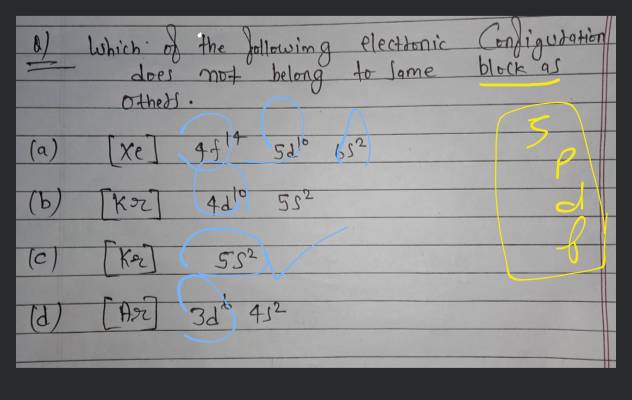 Q) Which of the following electronic Configuration
does not belong to same block as
others.
(a) [Xe] 4f¹⁴ 5d¹⁰ 6s²
(b) [Kr] 4d¹⁰ 5s²
(c) [Kr] 5s²
(d) [Ar] 3d⁶ 4s²
S
p
d
f